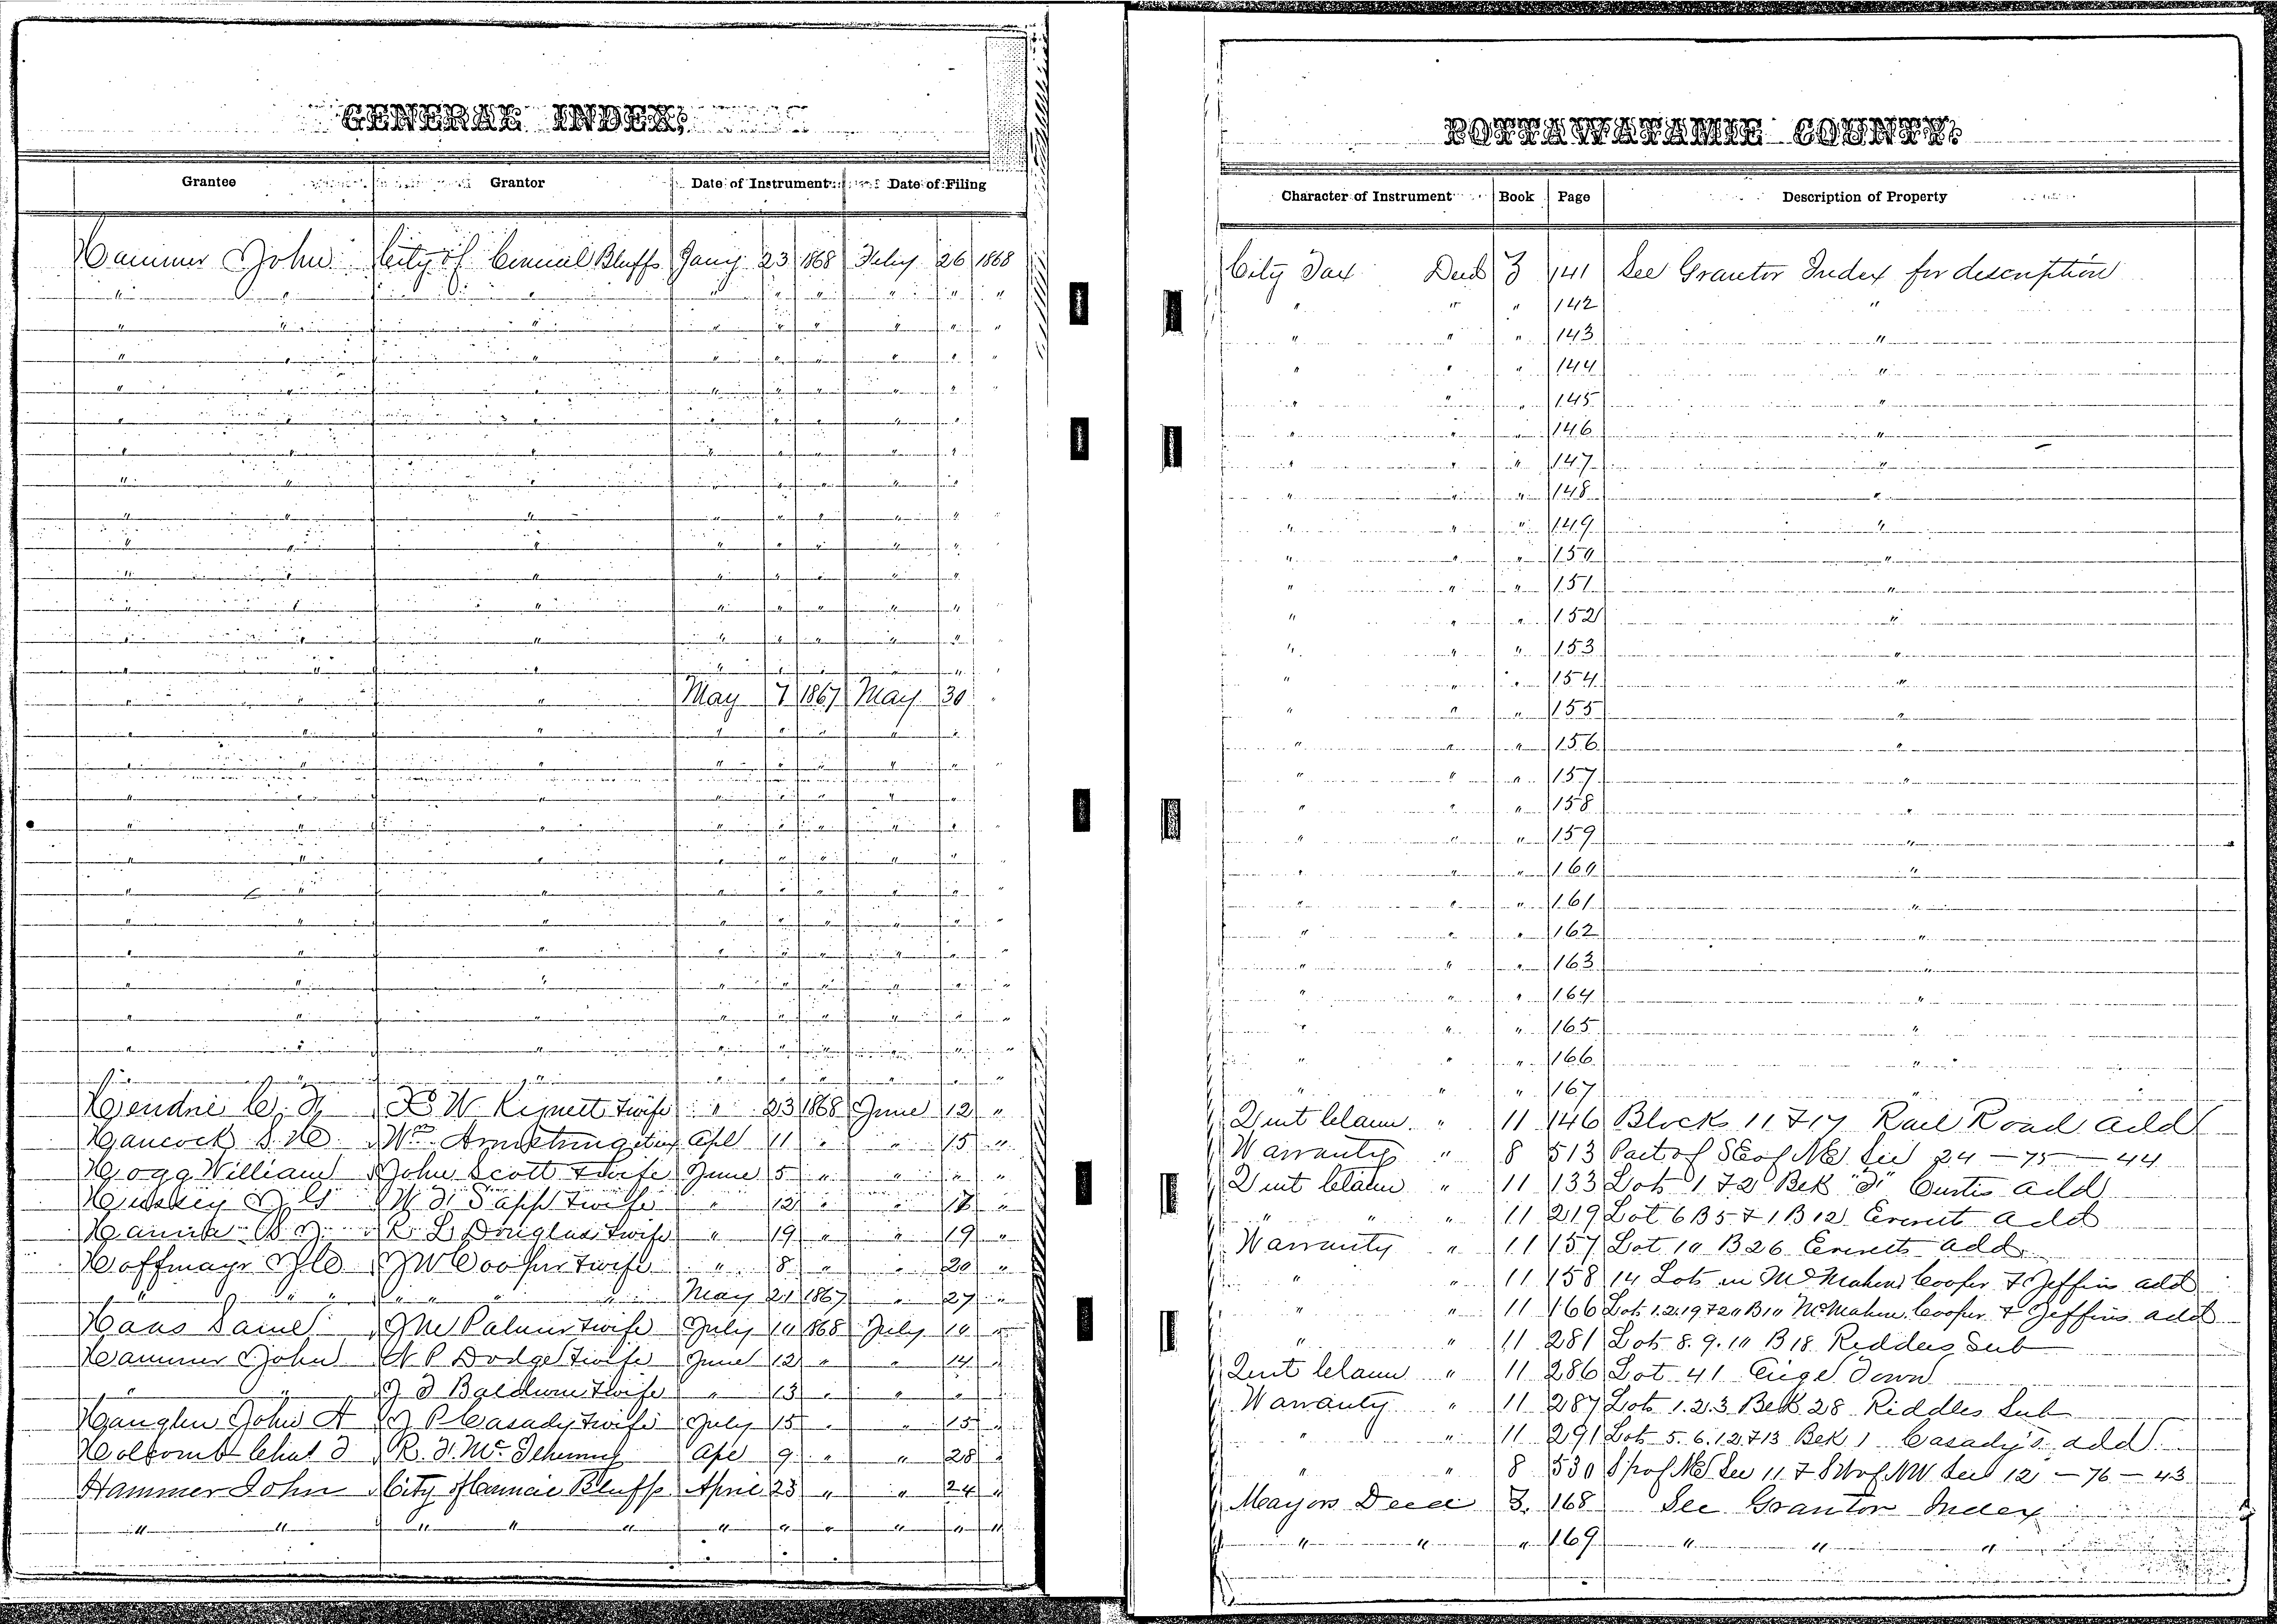 GENERAL INDEX,
Grantee Grantor Date of Instrument Date of Filing
Hammer John City of Council Bluffs Jany 23 1868 Feby 26 1868
" " " " " " " " "
" " " " " " " " "
" " " " " " " " "
" " " " " " " " "
" " " " " " " " "
" " " " " " " " "
" " " " " " " " "
" " " " " " " " "
" " " " " " " " "
" " " " " " " " "
" " " " " " " " "
" " " " " " " " "
" " " " " " " " "
" " " May 7 1867 May 30 "
" " " " " " " " "
" " " " " " " " "
" " " " " " " " "
" " " " " " " " "
" " " " " " " " "
" " " " " " " " "
" " " " " " " " "
" " " " " " " " "
" " " " " " " " "
" " " " " " " " "
" " " " " " " " "
" " " " " " " " "
Hendrie C. F. W Kinnett & wife " 23 1868 June 12 "
Hancock Wm Armstrong Apl 11 " " 15 "
Hogg William John Scott & wife June 5 " " " "
W F Sapp & wife " 12 " " 18 "
B. F. R. L. Douglas & wife " 19 " " 19 "
Hoffmayr J W Cooper & wife " 8 " " 20 "
" " " " " " May 21 1867 " 27 "
Haas Daniel J M Palmer & wife July 10 1868 July 10 "
Hammer John N P Dodge & wife June 12 " " 14 "
" " J T Baldwin & wife " 13 " " " "
Hanglin John A J P Casady & wife July 15 " " 15 "
Holcomb Chas D R. F. Mc Apl 9 " " 28 "
Hammer John City of Council Bluffs April 23 " " 24 "
" " " " " " " " " " "
POTTAWATAMIE COUNTY.
Character of Instrument Book Page Description of Property
City Tax Deed 3 141 See Grantor Index for description
" " " 142 "
" " " 143 "
" " " 144 "
" " " 145 "
" " " 146 "
" " " 147 "
" " " 148 "
" " " 149 "
" " " 150 "
" " " 151 "
" " " 152 "
" " " 153 "
" " " 154 "
" " " 155 "
" " " 156 "
" " " 157 "
" " " 158 "
" " " 159 "
" " " 160 "
" " " 161 "
" " " 162 "
" " " 163 "
" " " 164 "
" " " 165 "
" " " 166 "
" " " 167 "
Quit Claim " 11 146 Block 11 & 17 Rail Road Add
Warranty " 8 513 Part of SE of NE Sec 24 — 75 — 44
Quit Claim " 11 133 Lots 1 & 2 Bck "F" Curtis Add
" " " 11 219 Lot 6 B 5 & 1 B 12 Everett Add
Warranty " 11 157 Lot 10 B 26 Everetts Add
" " 11 158 14 Lots in McMahon Cooper & Jeffris Add
" " 11 166 Lots 1. 2. 19 & 20 B 10 McMahon Cooper & Jeffris Add
" " 11 281 Lots 8. 9. 10 B 18 Riddles Sub
Quit Claim " 11 286 Lot 41 Orig Town
Warranty " 11 287 Lots 1. 2. 3 Bck 28 Riddles Sub
" " 11 291 Lots 5. 6. 12 & 13 Bck 1 Casady's Add
" " 8 530 S½ of NE Sec 11 & SW of NW Sec 12 — 76 — 43
Mayors Deed 3. 168 See Grantor Index
" " " 169 " " "